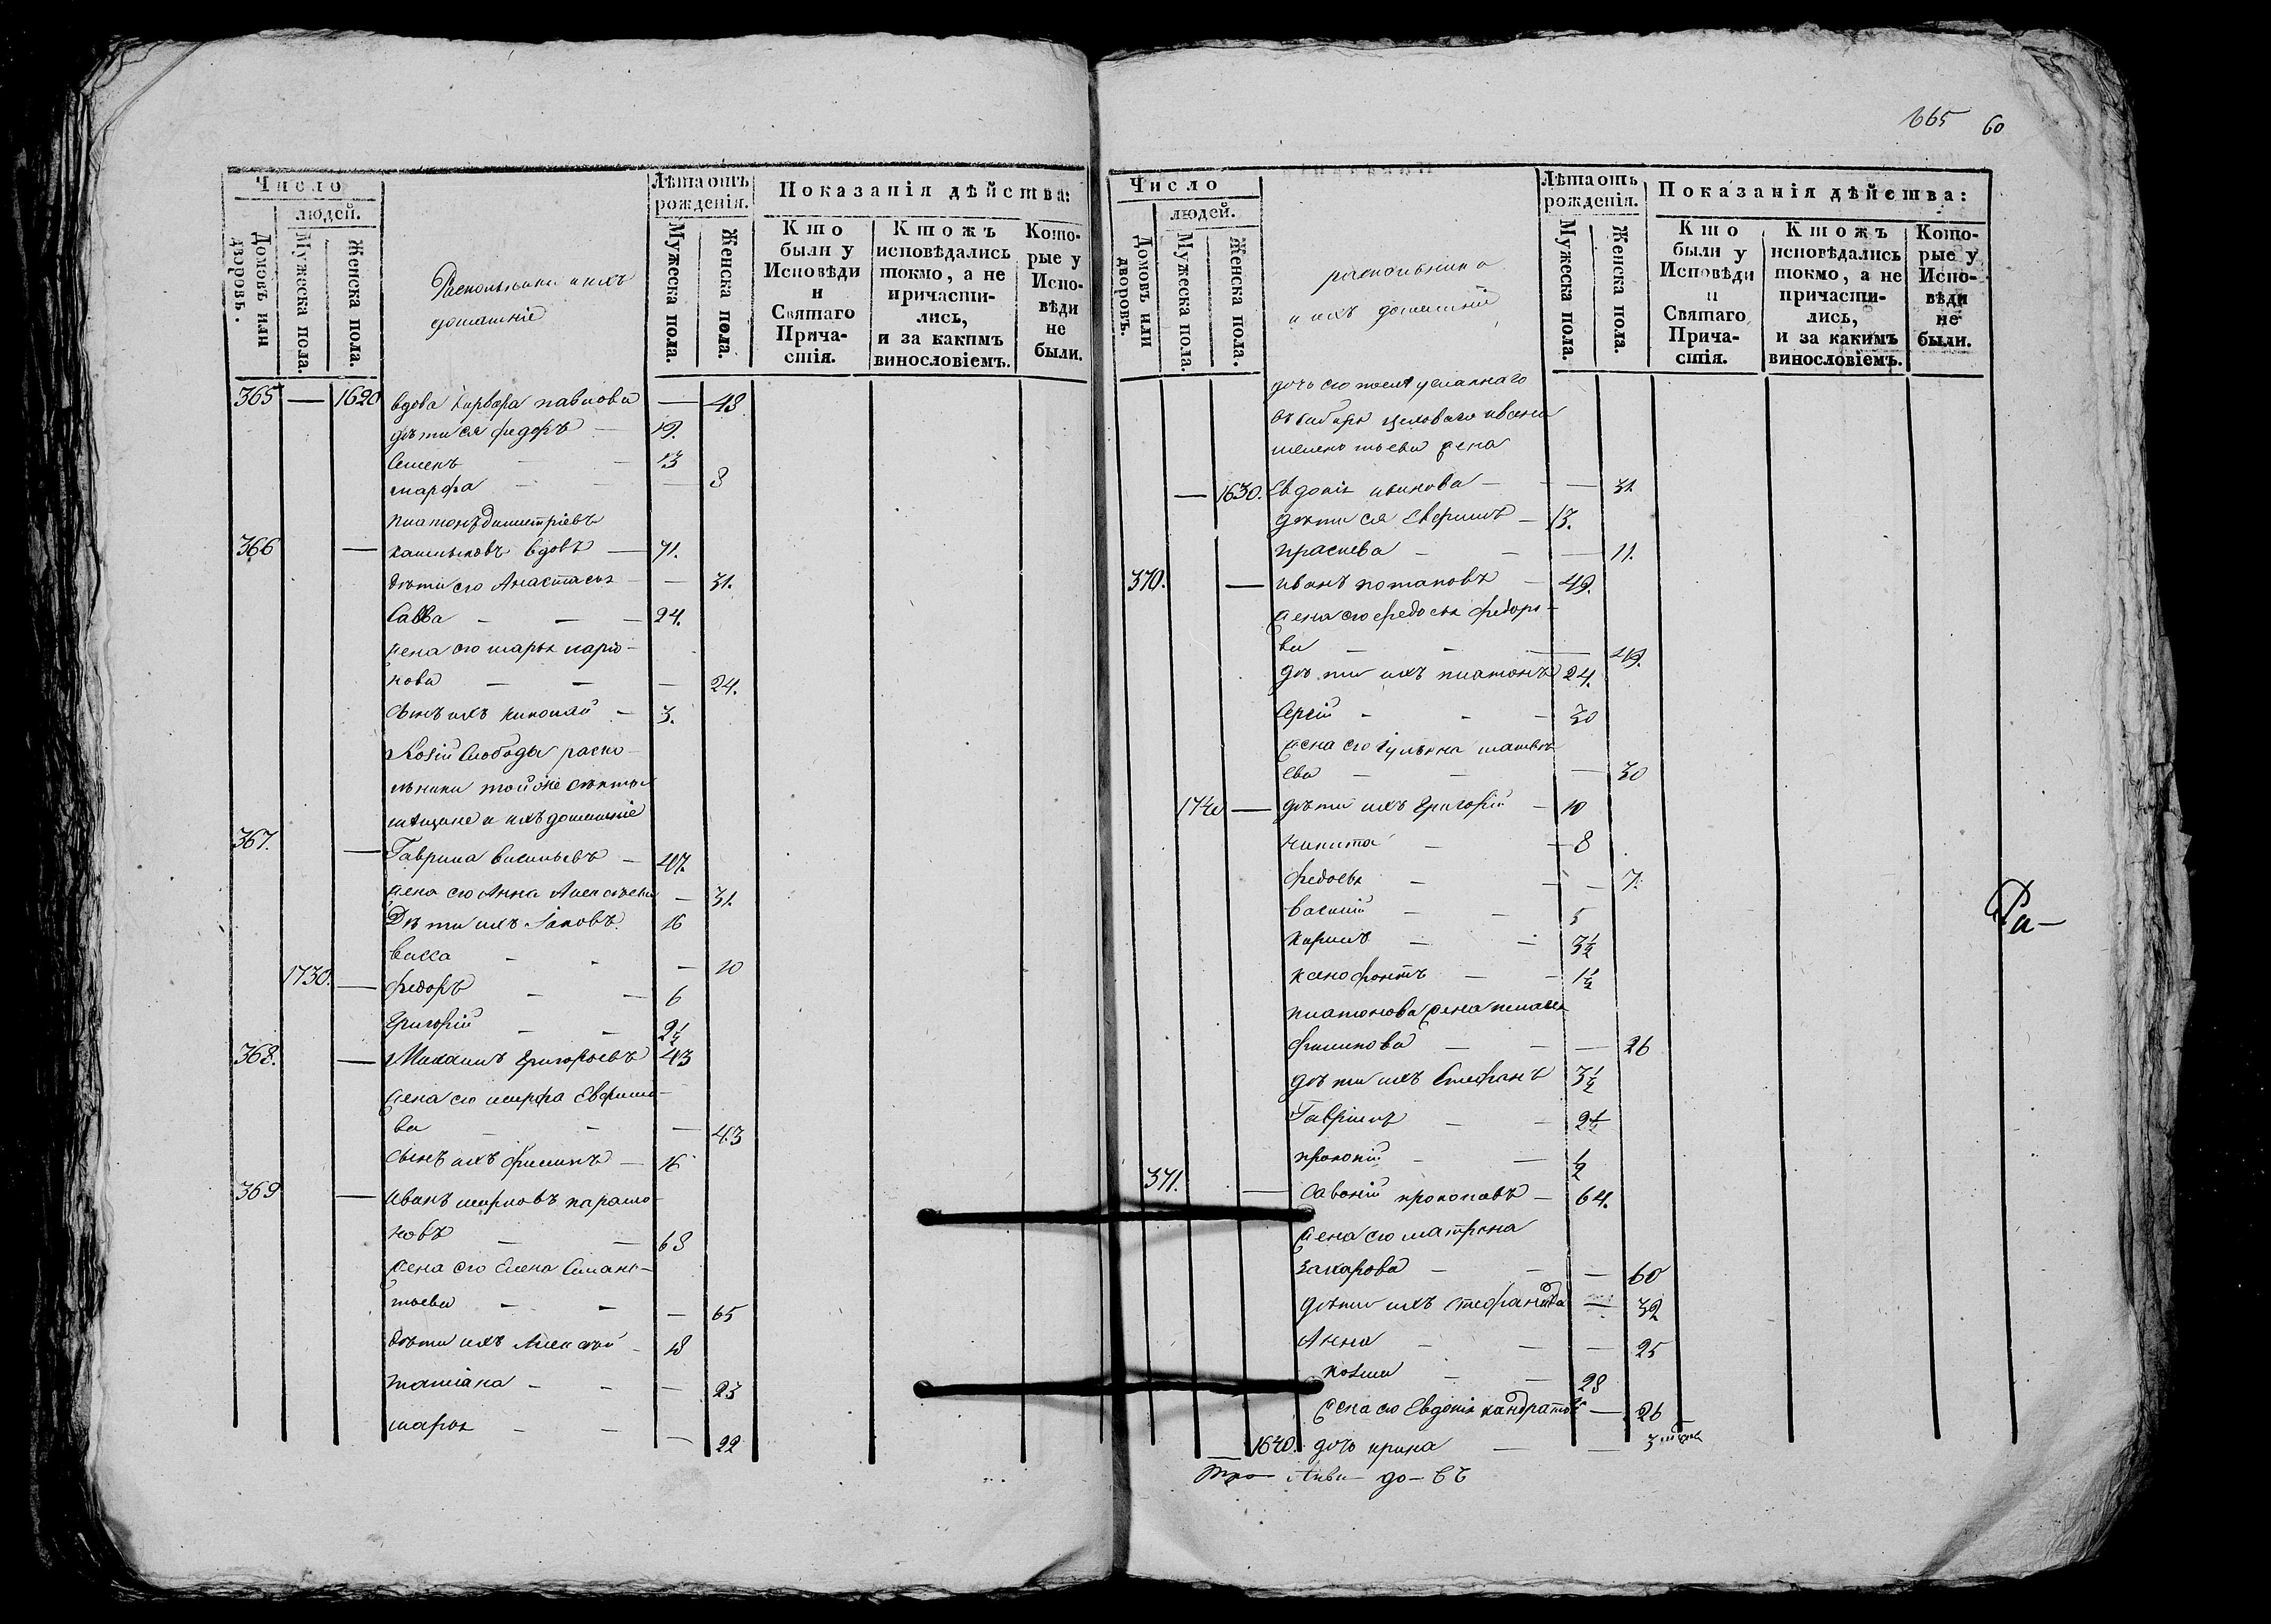 665 60
Число
людей.
Домовъ или дворовъ.
Мужеска пола.
Женска пола.
Раскольники и ихъ
домашніе
Лѣта отъ рожденія.
Мужеска пола.
Женска пола.
Показанія дѣйства:
Кто были у Исповѣди и Святаго Причастія.
Ктожъ исповѣдались токмо, а не причастились, и за какимъ винословіемъ.
Которые у Исповѣди не были.
365 — 1620 вдова Варвара павлова — 48
дѣти ея федоръ — 19.
Семенъ — — 13
марфа — — 8
платонъ димитріевъ
366 — калмыковъ вдовъ — 71.
дѣти его Анастасья — — 31.
Савва — — — 24.
жена его марья иларіо-
нова — — — 24.
сынъ ихъ николай — 3.
слободы раско-
льники той же секты
мещане и ихъ домашніе
367. — Гаврила васильевъ — 47.
жена его Анна Алексѣева — 31.
Дѣти ихъ Іаковъ 16
васса - - — 10
1730. — федоръ — — 6
Григорій — — 2½
368. — Михаилъ Григорьевъ 43
жена его марфа Ефимо-
ва — - — 43
сынъ ихъ филипъ — 16
369 — Иванъ марковъ парамо-
новъ — — 68
жена его Елена Силанть-
тьева — — — 65
дѣти ихъ Алексѣй - 18
татіана — - — 23
марья - - — 22
Число
людей.
Домовъ или дворовъ.
Мужеска пола.
Женска пола.
раскольники
и ихъ домашніе
Лѣта отъ рожденія.
Мужеска пола.
Женска пола.
Показанія дѣйства:
Кто были у Исповѣди и Святаго Причастія.
Ктожъ исповѣдались токмо, а не причастились, и за какимъ винословіемъ.
Которые у Исповѣди не были.
дочь его послѣ усланнаго
въ сибирь ивана
жена
— 1630. Евдокія иванова — — 31
дѣти ея Ефимъ — 13.
прасковья — — — 11.
370. — иванъ потаповъ — 49.
жена его федосья федоро-
ва — - — 49.
дѣти ихъ платонъ 24.
Сергій - - — 30
жена его Іульяна матвѣ-
ева — — — 30
1740 — дѣти ихъ Григорій — 10
никита — — 8
федосья — — — 7.
василій — — 5
кирилъ — — 3½
ксенофонтъ — - 1½
платонова жена пелагея
филипова — — — 26
дѣти ихъ Стефанъ 3½
Гавріилъ — — 2½
прокопій - — ½
371. — Савелій прокопьевъ — 64.
жена его матрона
захарова — - — 60
дѣти ихъ стефанида — 32
Анна — — — 25
козма — — 28
жена его Евдокія кандратова — 26
— 1640. дочь ирина — — 3
до — съ
Ра—